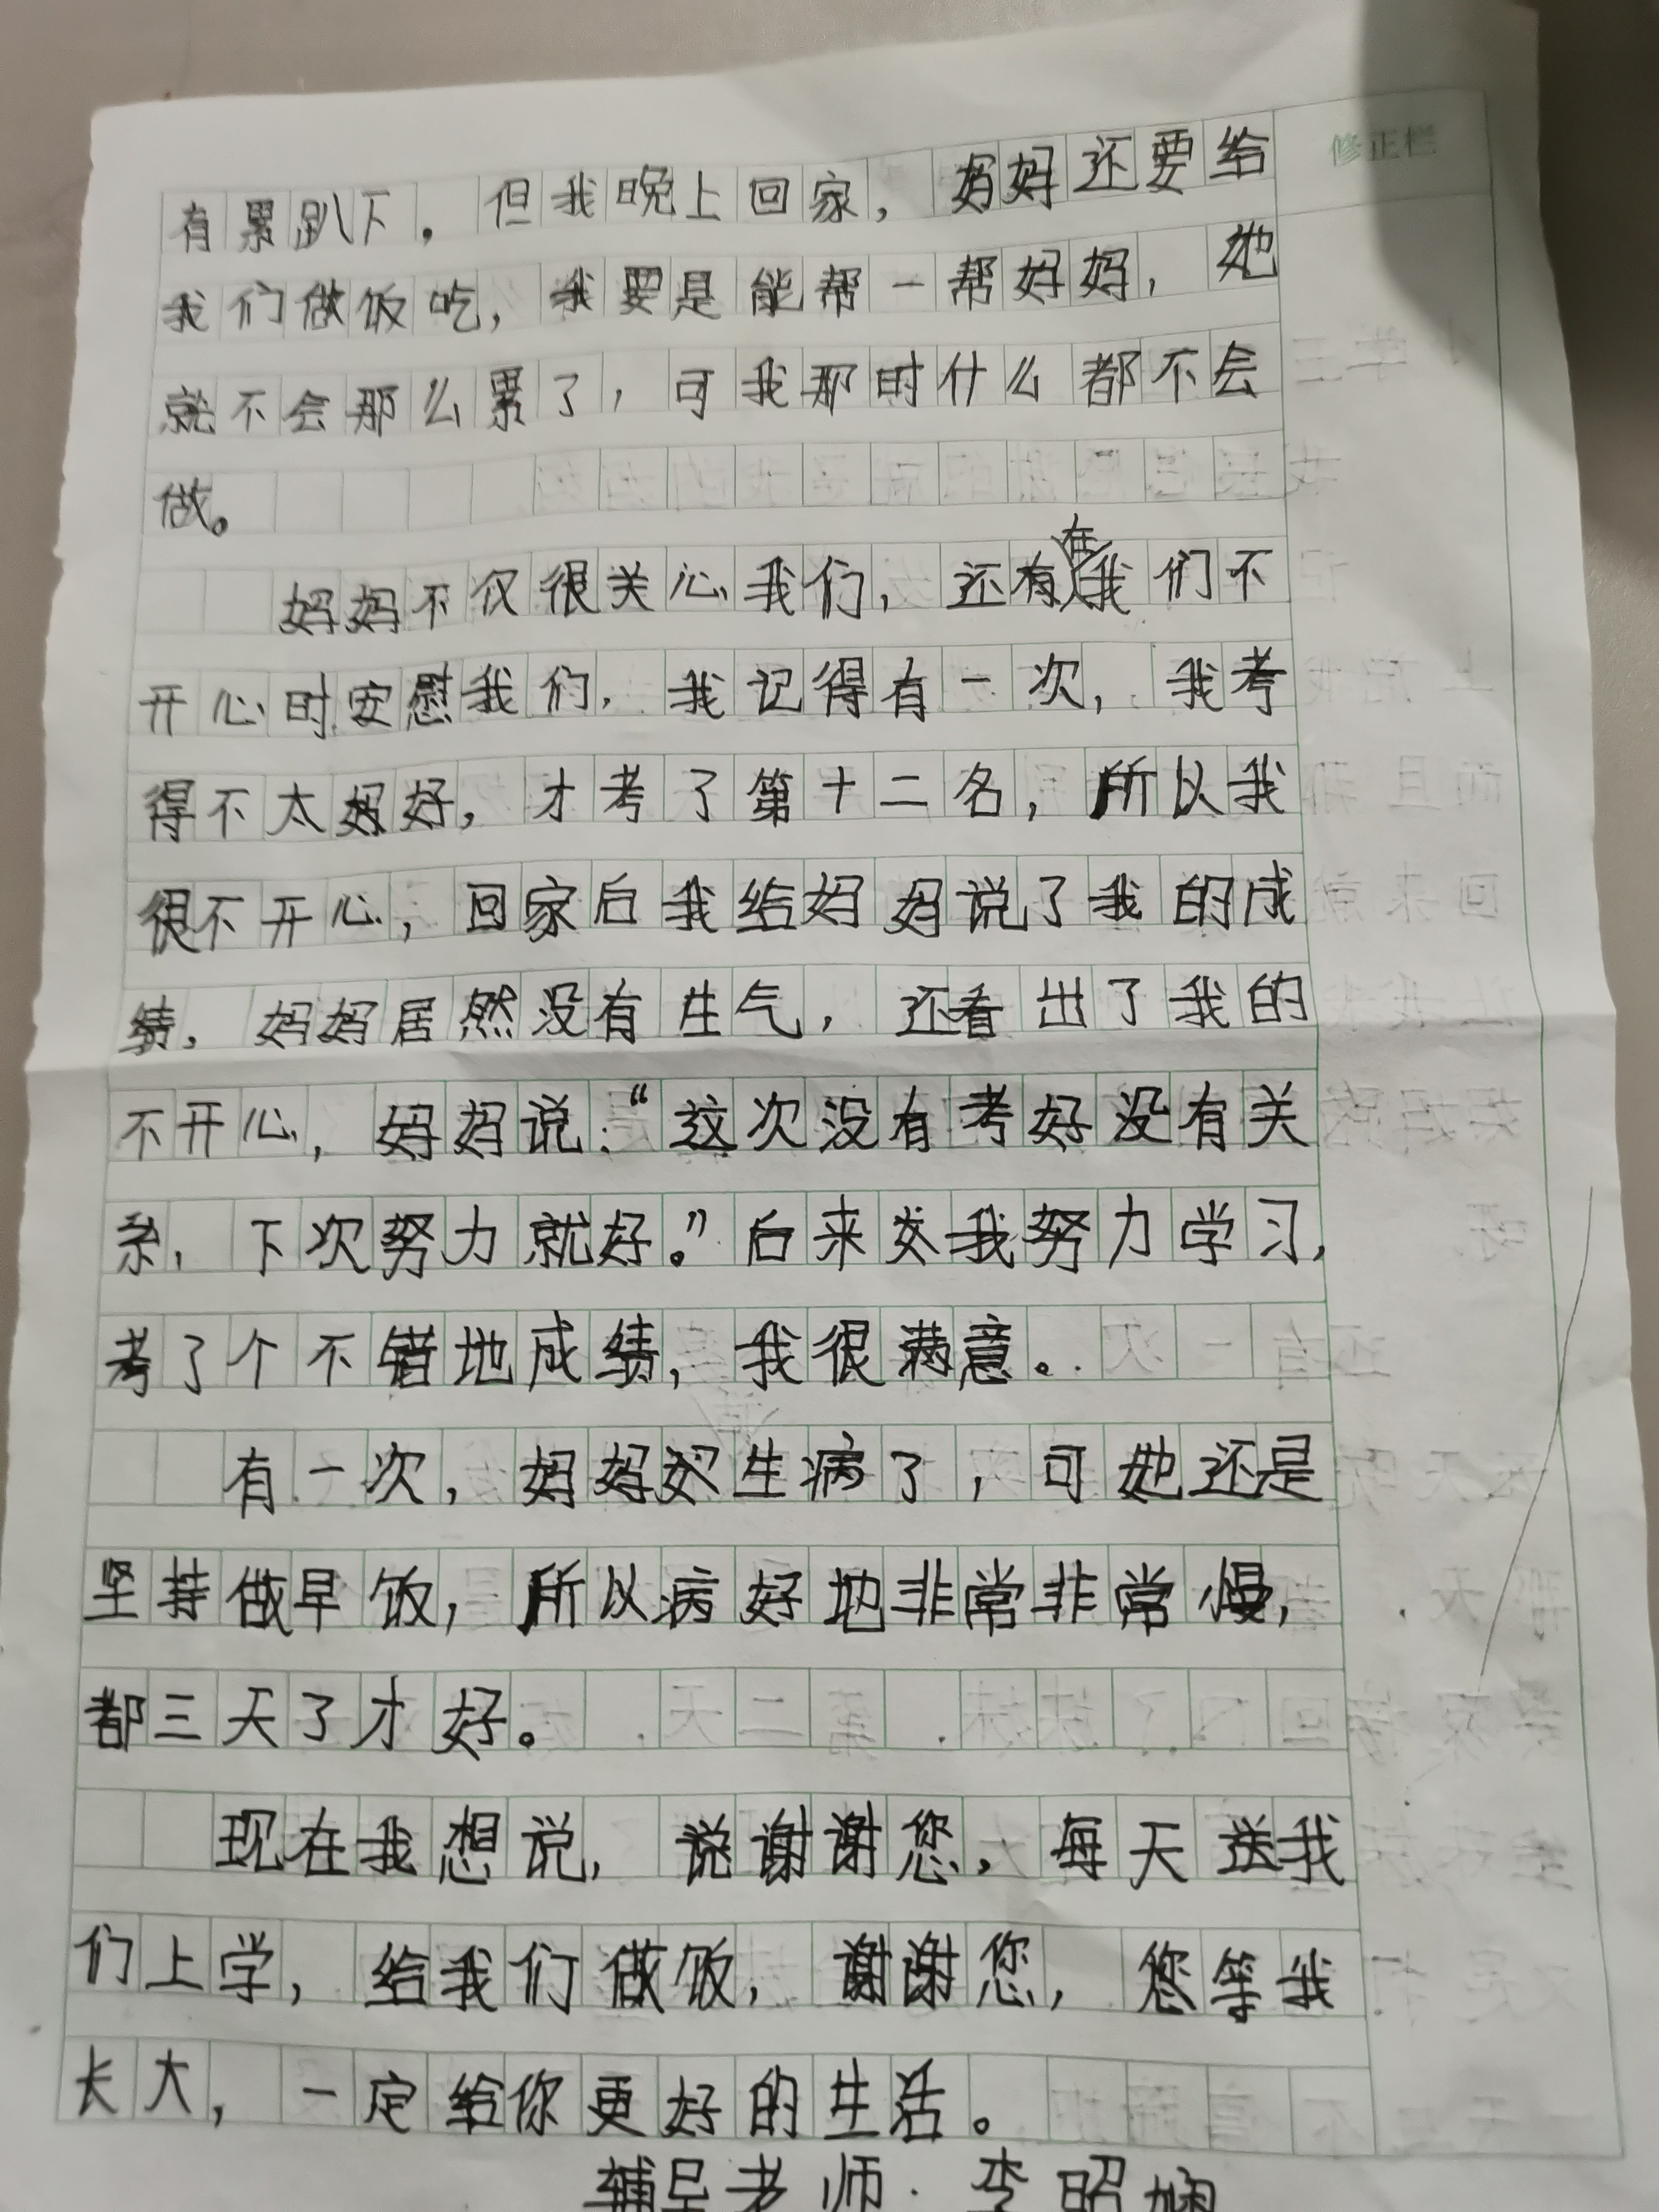 修正栏
有累趴下。但我晚上回家，妈妈还要给
我们做饭吃，我要是能帮一帮好妈，她
就不会那么累了，可我那时什么都不会
做。
妈妈不仅很关心我们，还有在我们不
开心时安慰我们，我记得有一次，我考
得不太好，才考了第十二名，所以我
很不开心，回家后我给妈妈说了我的成
绩，妈妈居然没有生气，还看出了我的
不开心，妈妈说：“这次没有考好没有关
系，下次努力就好。”后来我努力学习，
考了个不错地成绩，我很满意。
有一次，妈妈生病了，可她还是
坚持做早饭，所以病好地非常非常慢，
都三天了才好。
现在我想说，说谢谢您，每天送我
们上学，给我们做饭，谢谢您，您等我
长大，一定给你更好的生活。
老师：李昭娴